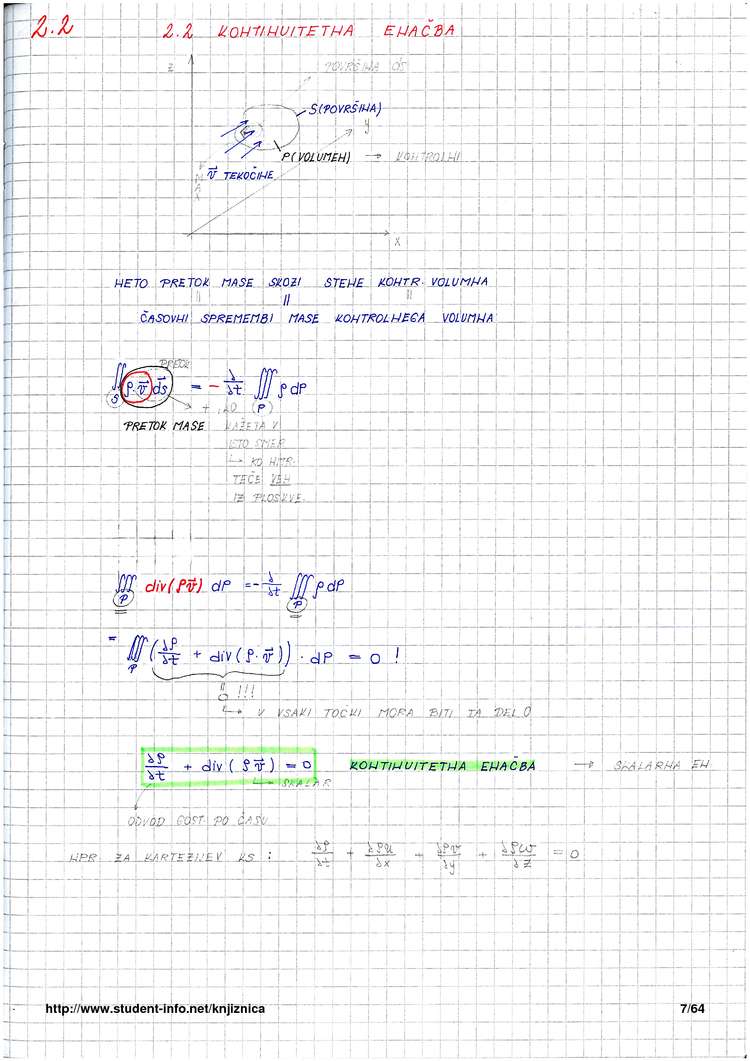 2.2
2.2 KONTINUITETNA ENAČBA
z
POVRŠINA OS
S (POVRŠINA)
y
P (VOLUMEN) → KONTROLNI
v⃗ TEKOČINE
x
NETO PRETOK MASE SKOZI STENE KONTR. VOLUMNA
||
ČASOVNI SPREMEMBI MASE KONTROLNEGA VOLUMNA
∬_S ρ·v⃗ ds⃗ = - ∂/∂t ∭_(P) ρ dP
PRETOK MASE KAŽETA V
ISTO SMER
↳ KO NTR.
TEČE VEN
IZ PLOSKVE
∭_P div(ρv⃗) dP = - ∂/∂t ∭_P ρ dP
= ∭_P (∂ρ/∂t + div(ρ·v⃗)) · dP = 0 !
0 !!!
↳ V VSAKI TOČKI MORA BITI TA DEL 0
∂ρ/∂t + div(ρv⃗) = 0 KONTINUITETNA ENAČBA → SKALARNA EN
↳ SKALAR
ODVOD GOST. PO ČASU
NPR. ZA KARTEZIJEV KS : ∂ρ/∂t + ∂ρu/∂x + ∂ρv/∂y + ∂ρw/∂z = 0
http://www.student-info.net/knjiznica 7/64